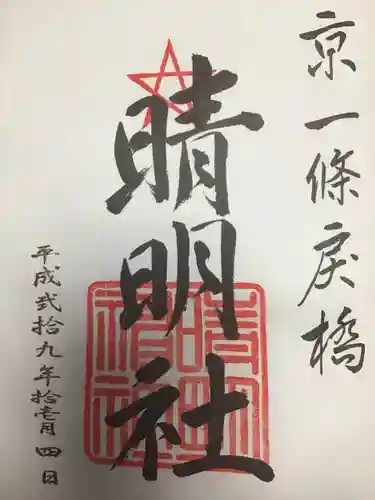 京一條戻橋
晴明社
平成弐拾九年拾壱月四日
晴明神社